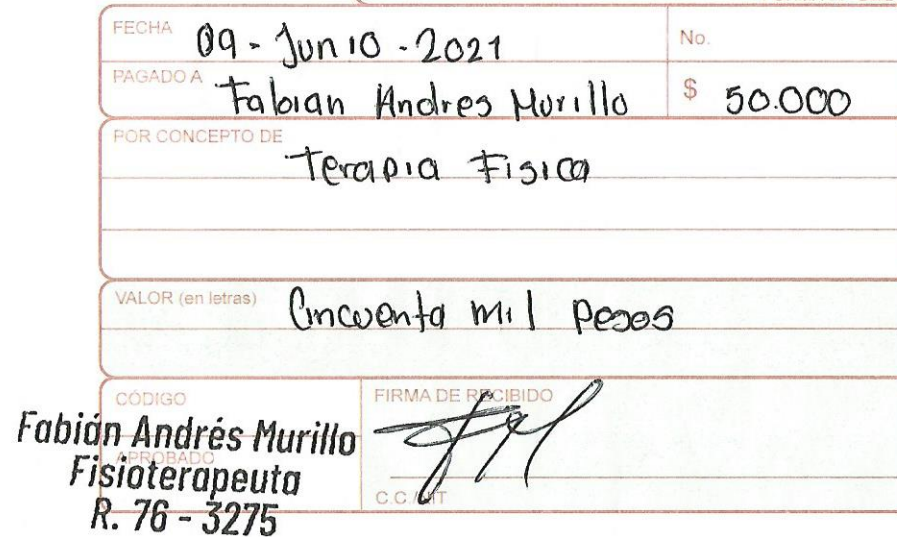 FECHA 09 - Junio - 2021 No.
PAGADO A Fabian Andres Murillo $ 50.000
POR CONCEPTO DE
Terapia Fisica
VALOR (en letras) Cincuenta mil pesos
CÓDIGO FIRMA DE RECIBIDO
Fabián Andrés Murillo
APROBADO
Fisioterapeuta
C.C./NIT
R. 76 - 3275